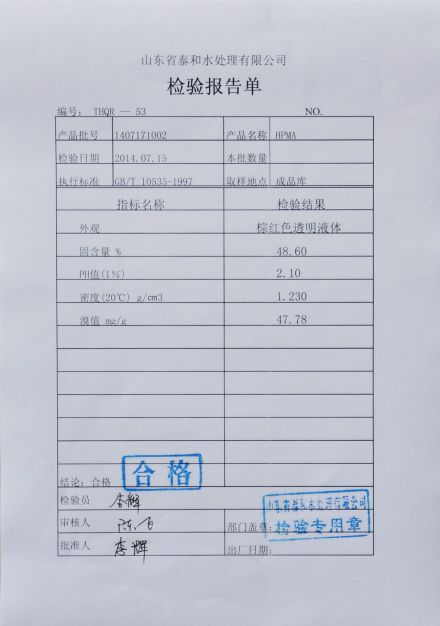 山东省泰和水处理有限公司
检验报告单
编号: THQR — 53 NO.
产品批号 1407171002 产品名称 HPMA
检验日期 2014.07.15 本批数量
执行标准 GB/T 10535-1997 取样地点 成品库
指标名称 检验结果
外观 棕红色透明液体
固含量 % 48.60
PH值(1%) 2.10
密度(20℃) g/cm3 1.230
溴值 mg/g 47.78
合格
结论: 合格
检验员 李辉
山东省泰和水处理有限公司
审核人 陈飞 部门盖章:
检验专用章
批准人 李辉 出厂日期: